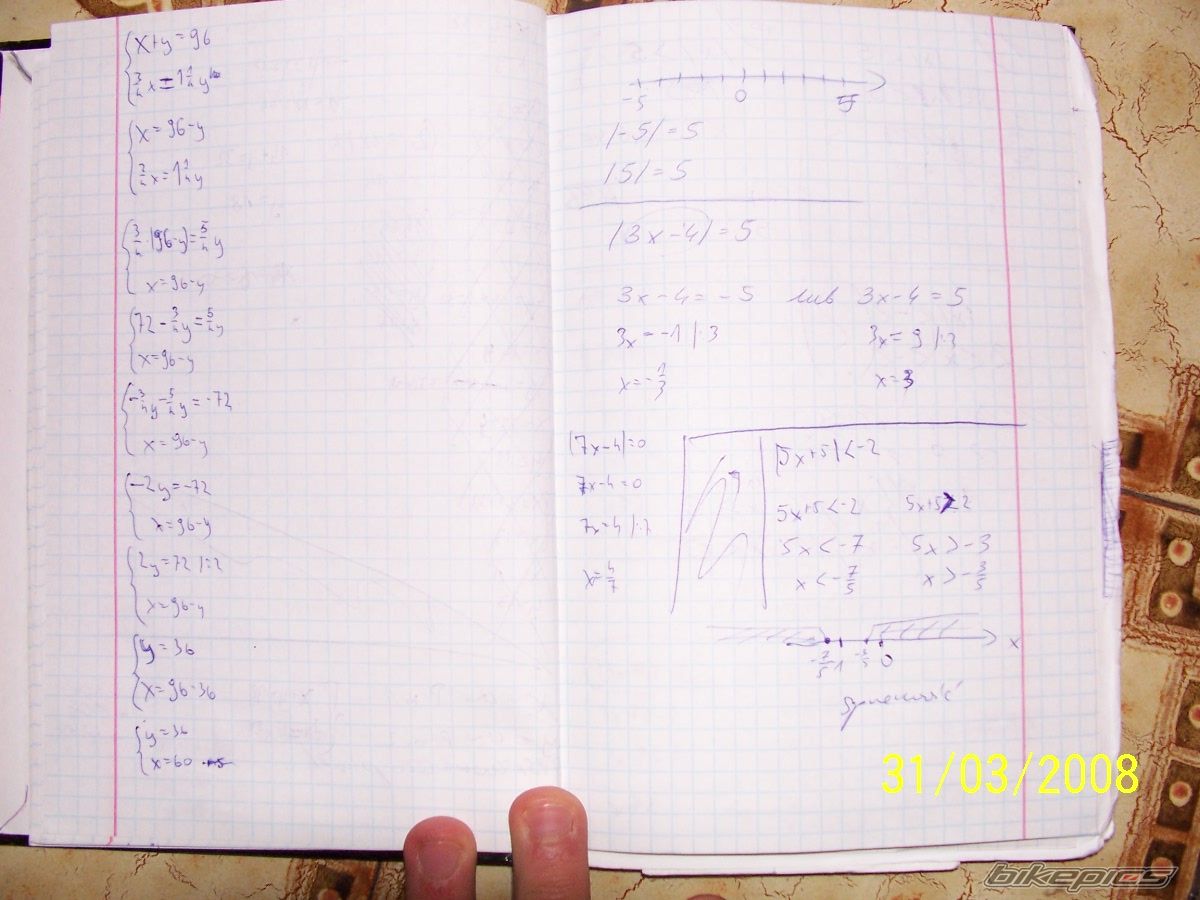 x+y=96
3/4 x = 1 1/4 y
x=96-y
3/4 x = 1 1/4 y
3/4 · (96-y) = 5/4 y
x=96-y
72 - 3/4 y = 5/4 y
x=96-y
-3/4 y - 5/4 y = -72
x=96-y
-2y=-72
x=96-y
2y=72 |:2
x=96-y
y=36
x=96-36
y=36
x=60
-5 0 5
|-5|=5
|5|=5
|3x-4|=5
3x-4=-5 lub 3x-4=5
3x=-1 |:3 3x=9 |:3
x=-1/3 x=3
|7x-4|=0
7x-4=0
7x=4 |:7
x=4/7
|5x+5|<-2
5x+5<-2 5x+5>2
5x<-7 5x>-3
x<-7/5 x>-3/5
x
-7/5 -1 -3/5 0
31/03/2008
bikepics